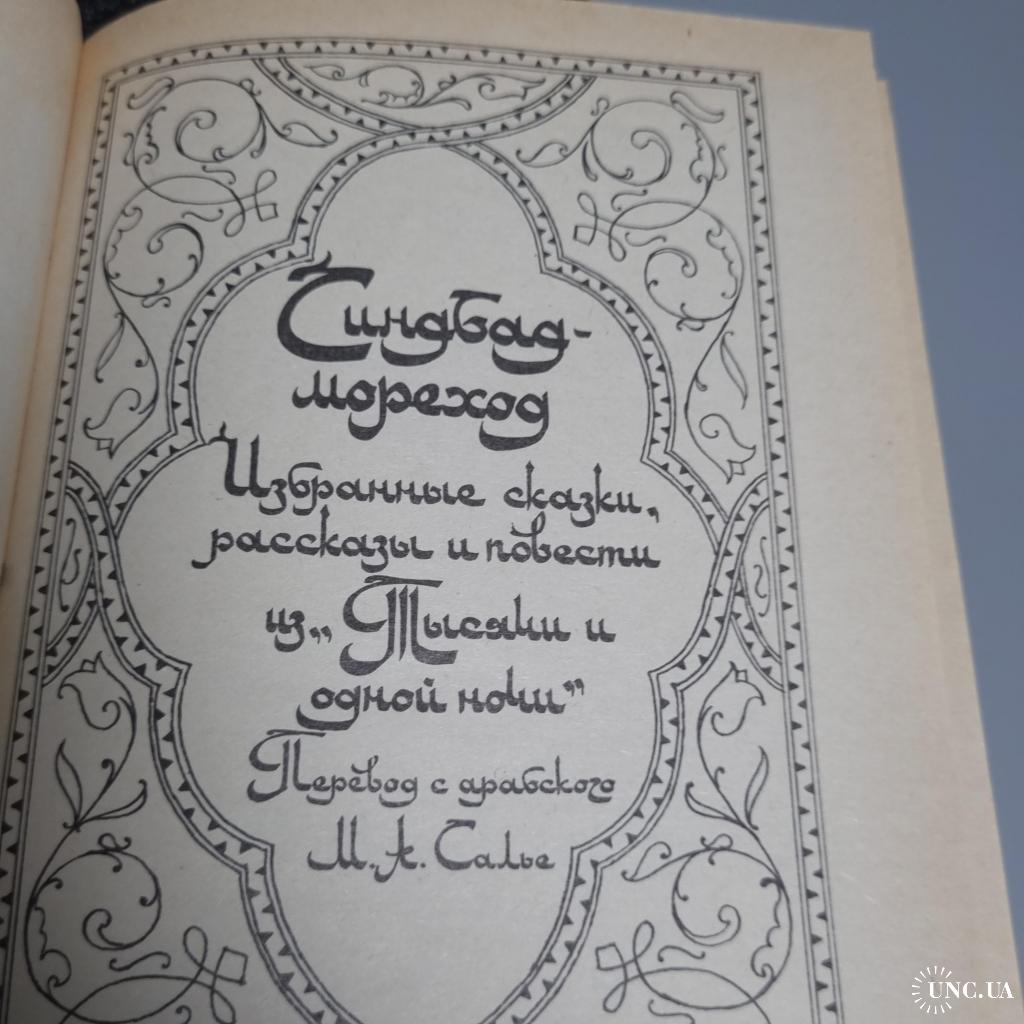 Синдбад-
мореход
Избранные сказки,
рассказы и повести
из „Тысячи и
одной ночи”
Перевод с арабского
М. А. Салье
UNC.UA